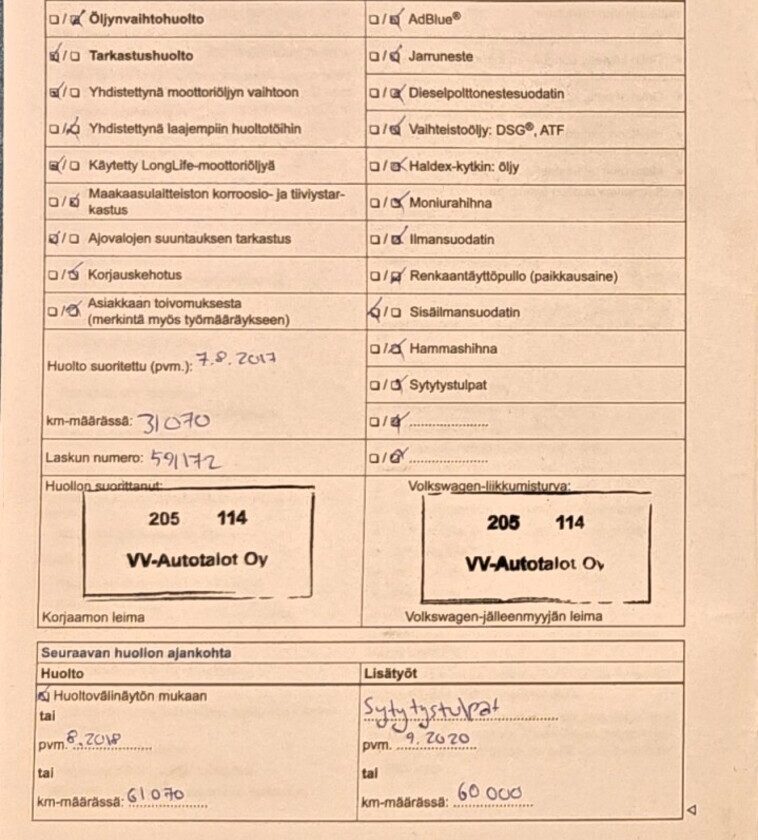 Öljynvaihtohuolto
Tarkastushuolto
Yhdistettynä moottoriöljyn vaihtoon
Yhdistettynä laajempiin huoltotöihin
Käytetty LongLife-moottoriöljyä
Maakaasulaitteiston korroosio- ja tiiviystar-
kastus
Ajovalojen suuntauksen tarkastus
Korjauskehotus
Asiakkaan toivomuksesta
(merkintä myös työmääräykseen)
Huolto suoritettu (pvm.): 7.8.2017
km-määrässä: 31070
Laskun numero: 591172
Huollon suorittanut:
205 114
VV-Autotalot Oy
Korjaamon leima
AdBlue®
Jarruneste
Dieselpolttonestesuodatin
Vaihteistoöljy: DSG®, ATF
Haldex-kytkin: öljy
Moniurahihna
Ilmansuodatin
Renkaantäyttöpullo (paikkausaine)
Sisäilmansuodatin
Hammashihna
Sytytystulpat
Volkswagen-liikkumisturva:
205 114
VV-Autotalot Oy
Volkswagen-jälleenmyyjän leima
Seuraavan huollon ajankohta
Huolto
Huoltovälinäytön mukaan
tai
pvm. 8.2018
tai
km-määrässä: 61070
Lisätyöt
Sytytystulpat
pvm. 9.2020
tai
km-määrässä: 60 000